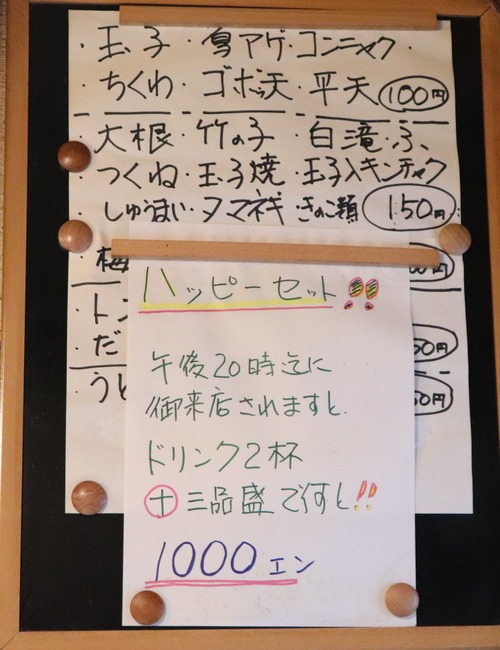 ・玉子・厚アゲ・コンニャク・
・ちくわ・ゴボウ天・平天 100円
・大根・竹の子・白滝・ふ・
・つくね・玉子焼・玉子入キンチャク
・しゅうまい・タマネギ・きのこ類 150円
・梅
・トン
・だ 50円
・うど 50円
ハッピーセット!!
午後20時迄に
御来店されますと、
ドリンク2杯
＋三品盛で何と!!
1000エン